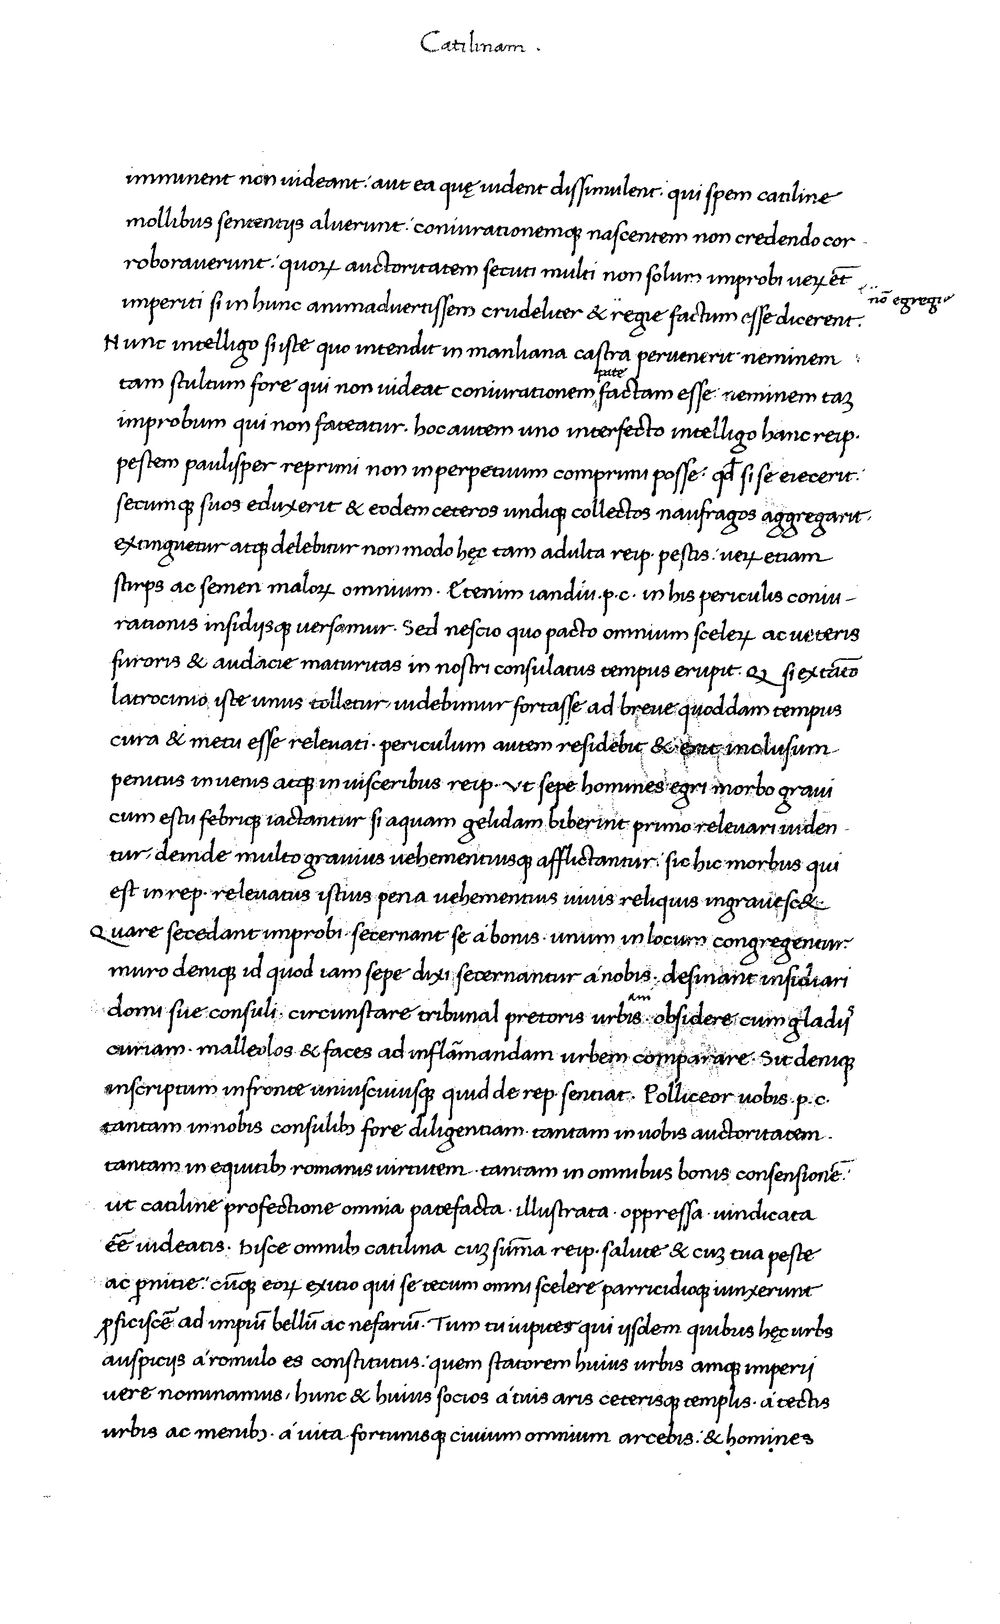 Catilinam .
imminent non uideant: aut ea quę uident dissimulent: qui spem catiline
mollibus sententijs aluerunt: coniurationemqꝫ nascentem non credendo cor-
roborauerunt: quoꝝ auctoritatem secuti multi non solum improbi ueꝝ et̄
imperiti si in hunc animaduertissem crudeliter & regie factum esse dicerent.
nō egregie
Nunc intelligo si iste quo intendit in manliana castra peruenerit neminem
pate
tam stultum fore qui non uideat coniurationem factam esse: neminem taꝫ
improbum qui non fateatur. hoc autem uno interfecto intelligo hanc reip.
pestem paulisper reprimi non inperpetuum comprimi posse: qđ si se eiecerit:
secumqꝫ suos eduxerit & eodem ceteros undiqꝫ collectos naufragos aggregarit.
extinguetur atqꝫ delebitur non modo hęc tam adulta reip. pestis: ueꝝ etiam
stirps ac semen maloꝝ omnium. Etenim iandiu .p.c. in his periculis coniu-
rationis insidijsqꝫ uersamur. Sed nescio quo pacto omnium sceleꝝ ac ueteris
furoris & audacie maturitas in nostri consulatus tempus erupit. Q si ex tāto
latrocinio iste unus tolletur, uidebimur fortasse ad breue quoddam tempus
cura & metu esse releuati. periculum autem residebit & erit inclusum
penitus in uenis atqꝫ in uisceribus reip. Vt sepe homines egri morbo graui
cum estu febriqꝫ iactantur si aquam gelidam biberint primo releuari uiden-
tur, deinde multo grauius uehementiusqꝫ afflictantur: sic hic morbus qui
est in rep. releuatus istius pena uehementius uiuis reliquis ingrauesc&.
Quare secedant improbi. secernant se a bonis. unum in locum congregentur.
muro deniqꝫ id quod iam sepe dixi secernantur a nobis. desinant insidiari
domi sue consuli. circunstare tribunal pretoris urbis. obsidere cum gladijs
am
curiam. malleolos & faces ad inflāmandam urbem comparare. Sit deniqꝫ
inscriptum in fronte uniuscuiusqꝫ quid de rep. sentiat. Polliceor uobis .p.c.
tantam in nobis consulibꝫ fore diligentiam. tantam in uobis auctoritatem.
tantam in equitibꝫ romanis uirtutem. tantam in omnibus bonis consensionē:
ut catiline profectione omnia patefacta. illustrata. oppressa. uindicata
ēē uideatis. hisce omnibꝫ catilina cuꝫ sūma reip. salute & cuꝫ tua peste
ac ꝑnitie: cūqꝫ eoꝝ exitio qui se tecum omni scelere parricidioqꝫ iunxerunt
ꝓficiscē ad impiū bellū ac nefariū. Tum tu iupiter qui ijsdem quibus hęc urbs
auspicijs a romulo es constitutus: quem statorem huius urbis atqꝫ imperij
uere nominamus, hunc & huius socios a tuis aris ceterisqꝫ templis. a tectis
urbis ac menibꝫ. a uita fortunisqꝫ ciuium omnium arcebis: & homines